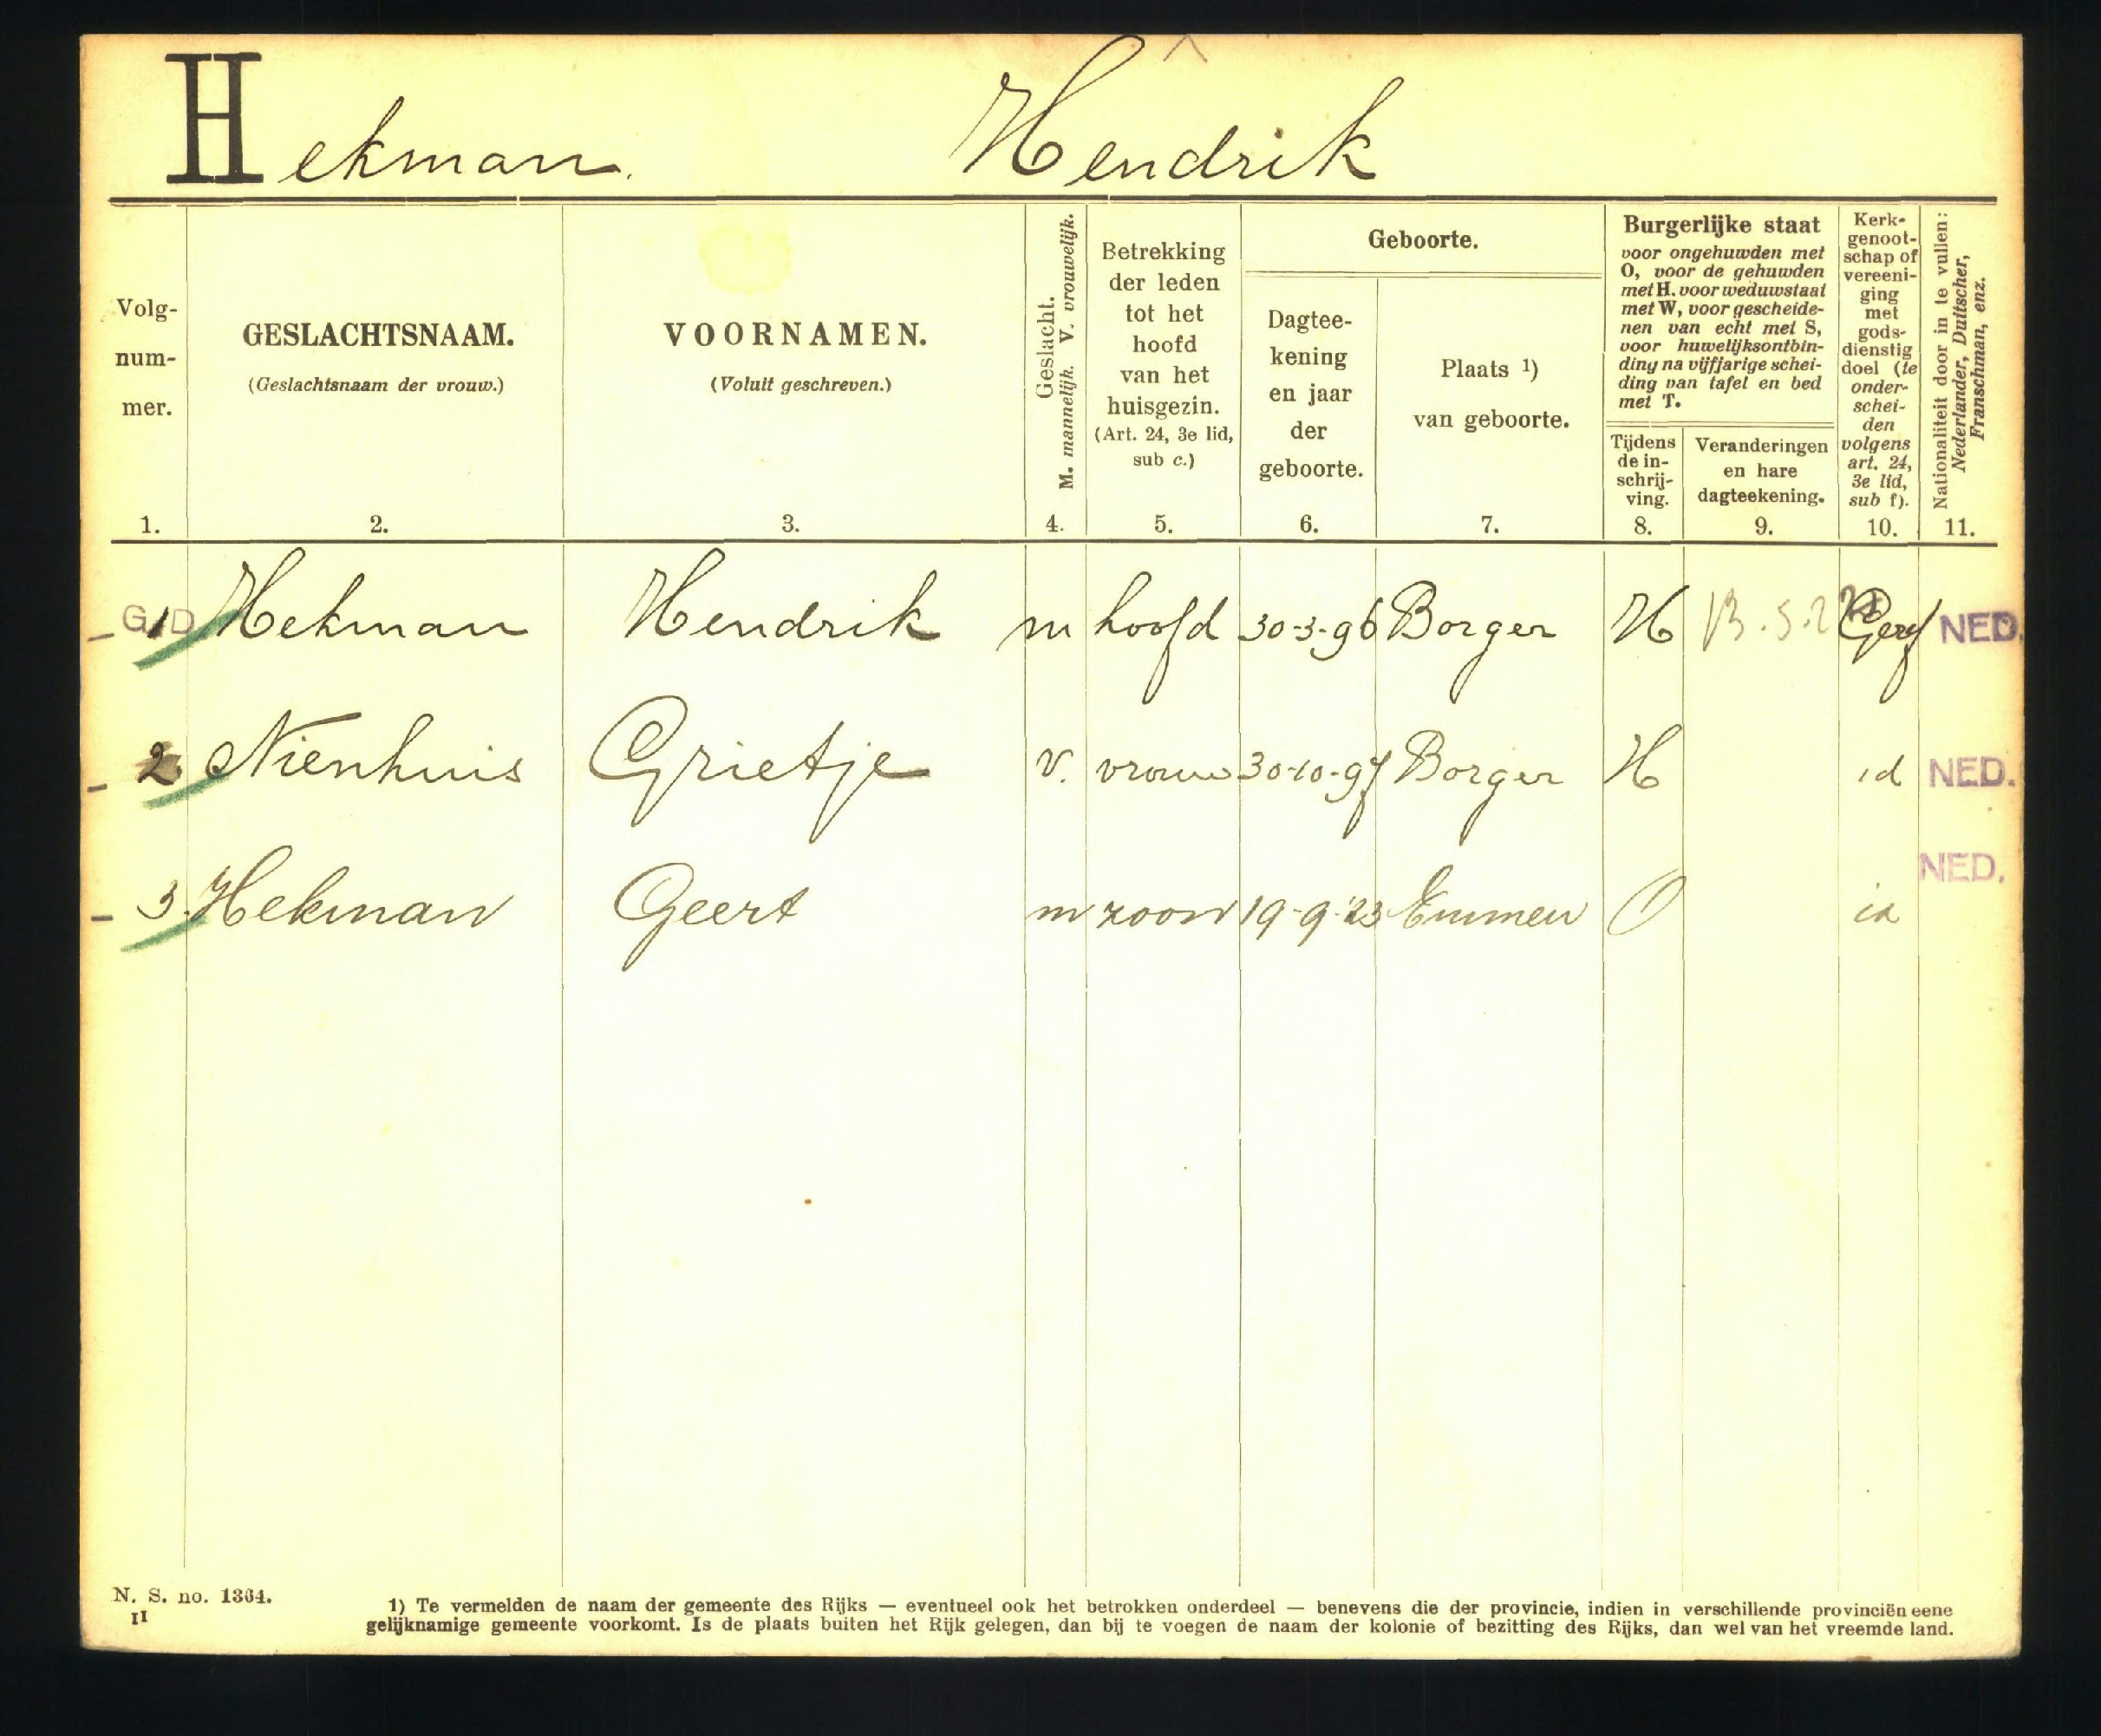 Hekman. Hendrik
Volg-
num-
mer.
1.
GESLACHTSNAAM.
(Geslachtsnaam der vrouw.)
2.
VOORNAMEN.
(Voluit geschreven.)
3.
Geslacht.
M. mannelijk. V. vrouwelijk.
4.
Betrekking
der leden
tot het
hoofd
van het
huisgezin.
(Art. 24, 3e lid,
sub c.)
5.
Geboorte.
Dagtee-
kening
en jaar
der
geboorte.
6.
Plaats 1)
van geboorte.
7.
Burgerlijke staat
voor ongehuwden met
O, voor de gehuwden
met H. voor weduwstaat
met W, voor gescheide-
nen van echt met S,
voor huwelijksontbin-
ding na vijfjarige schei-
ding van tafel en bed
met T.
Tijdens
de in-
schrij-
ving.
8.
Veranderingen
en hare
dagteekening.
9.
Kerk-
genoot-
schap of
vereeni-
ging
met
gods-
dienstig
doel (te
onder-
schei-
den
volgens
art. 24,
3e lid,
sub f).
10.
Nationaliteit door in te vullen:
Nederlander, Duitscher,
Franschman, enz.
11.
1 Hekman Hendrik m hoofd 30-3-96 Borger H Geref NED.
2 Nienhuis Grietje v. vrouw 30-10-97 Borger H id NED.
3. Hekman Geert m zoon 19-9-23 Emmen O id NED.
N. S. no. 1364.
II
1) Te vermelden de naam der gemeente des Rijks — eventueel ook het betrokken onderdeel — benevens die der provincie, indien in verschillende provinciën eene
gelijknamige gemeente voorkomt. Is de plaats buiten het Rijk gelegen, dan bij te voegen de naam der kolonie of bezitting des Rijks, dan wel van het vreemde land.